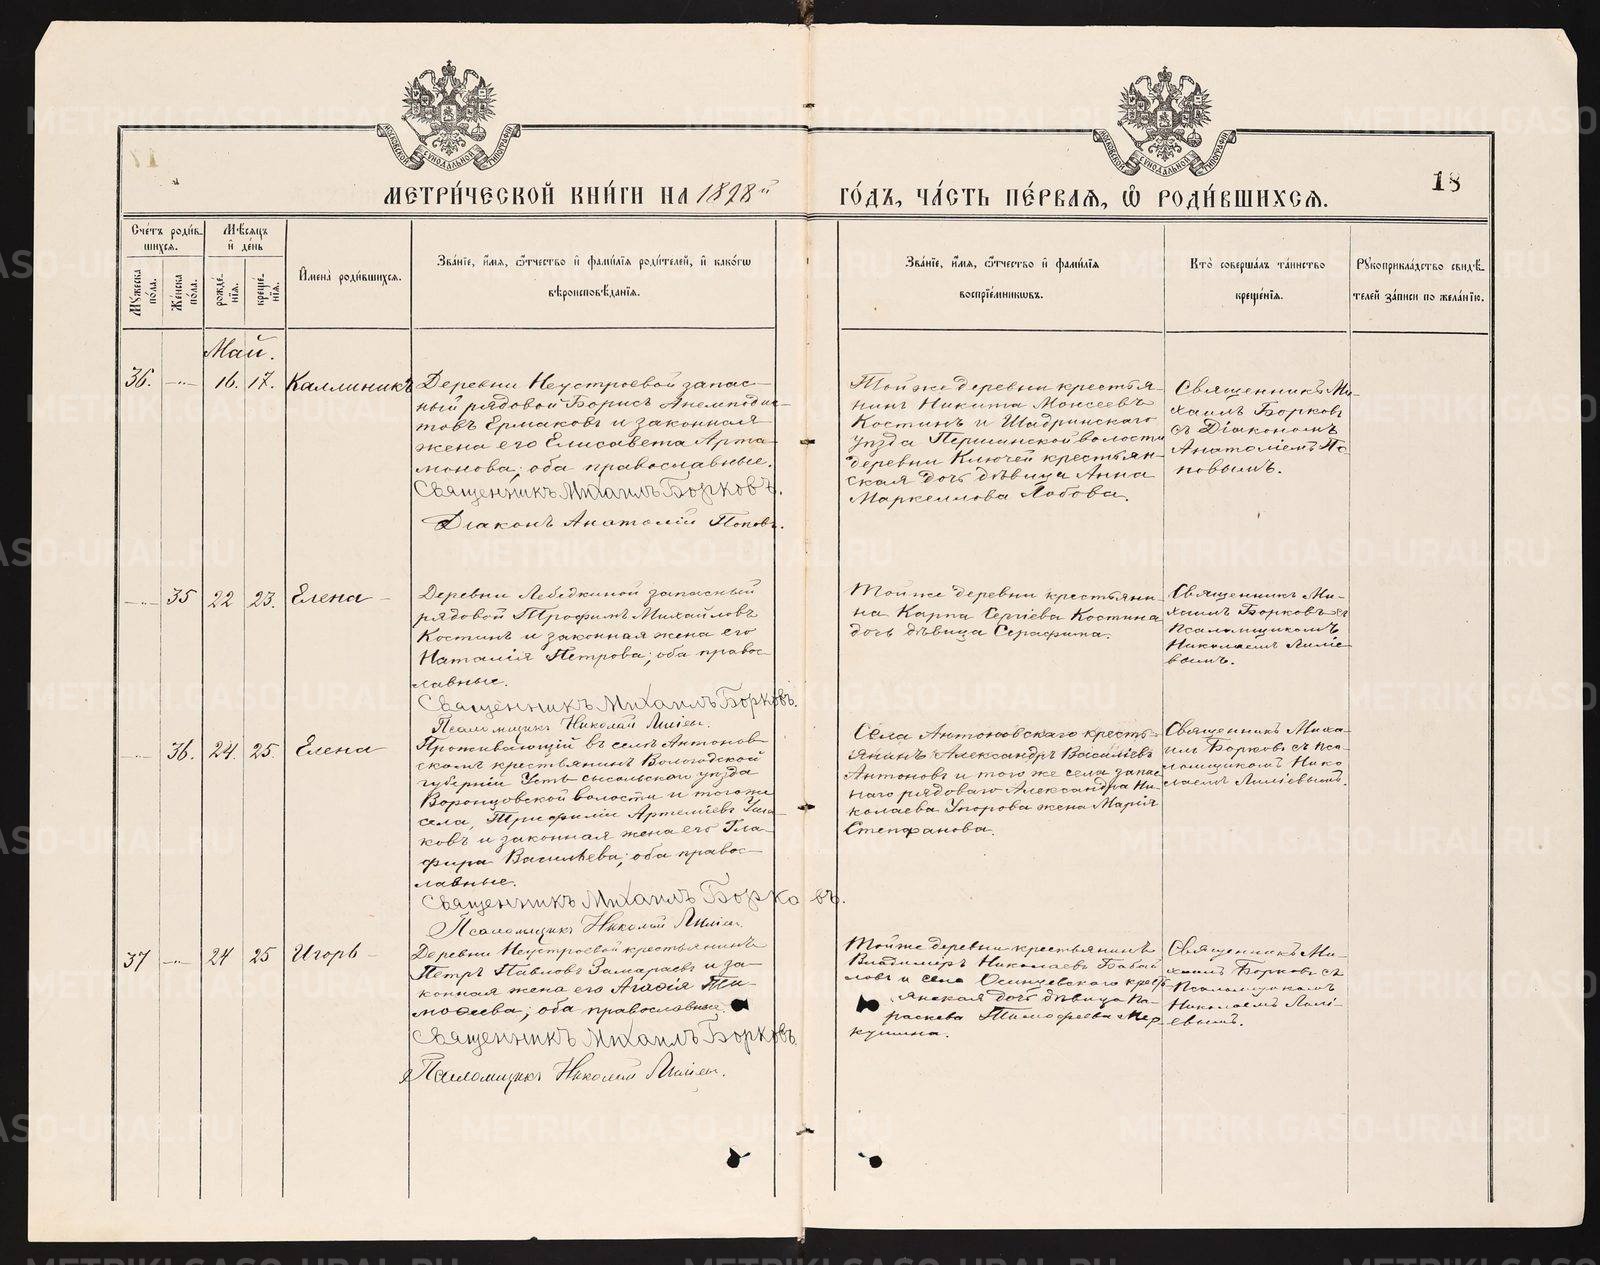 МЕТРИ́ЧЕСКОЙ КНИ́ГИ НА 1898й ГО́ДЪ, ЧА́СТЬ ПЕ́РВАѦ, Ѡ҆ РОДИ́ВШИХСѦ.
18
Сче́тъ роди́в-
шихся.
Мѣ́сяцъ
и҆ де́нь
Мꙋ́жеска по́ла.
Же́нска по́ла.
рожде́-нїя.
креще́-нїя.
И҆мена̀ роди́вшихся.
Зва́нїе, и҆́мя, ѻ҆́тчество и҆ фами́лїя роди́телей, и҆ како́гѡ
вѣроисповѣ́данїя.
Зва́нїе, и҆́мя, ѻ҆́тчество и҆ фами́лїя
воспрїе́мниковъ.
Кто̀ соверша́лъ та́инство
креще́нїя.
Рꙋкоприкла́дство свидѣ́-
телей за́писи по жела́нїю.
Май.
36.
16. 17.
Каллиникъ
Деревни Неустроевой запас-
ный рядовой Борисъ Анемподис-
товъ Ермаковъ и законная
жена его Елисавета Арта-
монова; оба православные.
Священникъ Михаилъ Борковъ.
Діаконъ Анатолій Поповъ.
Той же деревни крестья-
нинъ Никита Моисеевъ
Костинъ и Шадринскаго
уѣзда Першинской волости
деревни Ключей крестьян-
ская дочь дѣвица Анна
Маркеллова Лобова.
Священникъ Ми-
хаилъ Борковъ
съ Діакономъ
Анатоліемъ По-
новымъ.
35 22 23.
Елена
Деревни Лебедкиной запасный
рядовой Трофимъ Михайловъ
Костинъ и законная жена его
Наталія Петрова; оба правос-
лавные.
Священникъ Михаилъ Борковъ.
Псаломщикъ Николай
Той же деревни крестьяни-
на Карпа Сергіева Костина
дочь дѣвица Серафима.
Священникъ Ми-
хаилъ Борковъ съ
Псаломщикомъ
Николаемъ
36. 24. 25.
Елена
Проживающій въ селѣ Антонов-
скомъ крестьянинъ Вологодской
губерніи Усть-сысольскаго уѣзда
Воронцовской волости и тогоже
села, Трифилій Артеміевъ Уша-
ковъ и законная жена его Гла-
фира Васильева; оба правос-
лавные.
Священникъ Михаилъ Борковъ.
Псаломщикъ Николай
Села Антоновскаго кресть-
янинъ Александръ Василіевъ
Антоновъ и того же села запас-
наго рядоваго Александра Ни-
колаева Упорова жена Марія
Степанова.
Священникъ Миха-
илъ Борковъ съ Пса-
ломщикомъ Нико-
лаемъ
37 24 25
Игорь
Деревни Неустроевой крестьянинъ
Петръ Павловъ Замараевъ и за-
конная жена его Агафія Ти-
моѳеева; оба православные.
Священникъ Михаилъ Борковъ
Псаломщикъ Николай
Той же деревни крестьянинъ
Владимиръ Николаевъ Бабай-
ловъ и села Осинцевскаго кресть-
янская дочь дѣвица Па-
раскева Тимофеева Мер-
кушина.
Священникъ Ми-
хаилъ Борковъ съ
Псаломщикомъ
Николаемъ